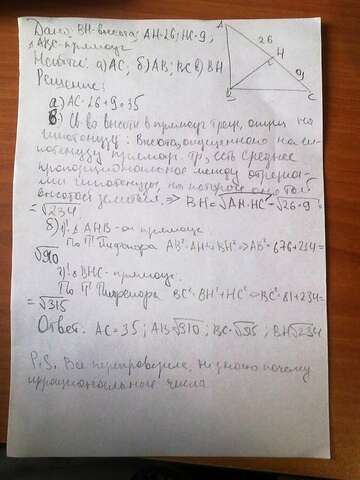 Дано: BH-высота; AH-26; HC-9;
△ABC-прямоуг
Найти: а) AC; б) AB; BC в) BH
A
26
H
9
B
C
Решение:
а) AC-26+9=35
в) Св-во высоты в прямоуг треуг, опущ на
гипотенузу: Высота, опущенного на ги-
потенузу прямоуг. тр, есть среднее
пропорциональное между отрезка-
ми гипотенузы, на которые она той
высотой делится. => BH=√AH·HC=√26·9
=√234
б) 1) △AHB-он прямоуг
По П Пифагора AB²-AH²+BH² => AB²-676+234=
√910
2) △BHC-прямоуг.
По П Пифагора BC²-BH²+HC² => BC²-81+234=
=√315
Ответ. AC=35; AB-√910; BC-√315; BH√234
P.S. Все перепроверила, не знаю почему
иррациональные числа.